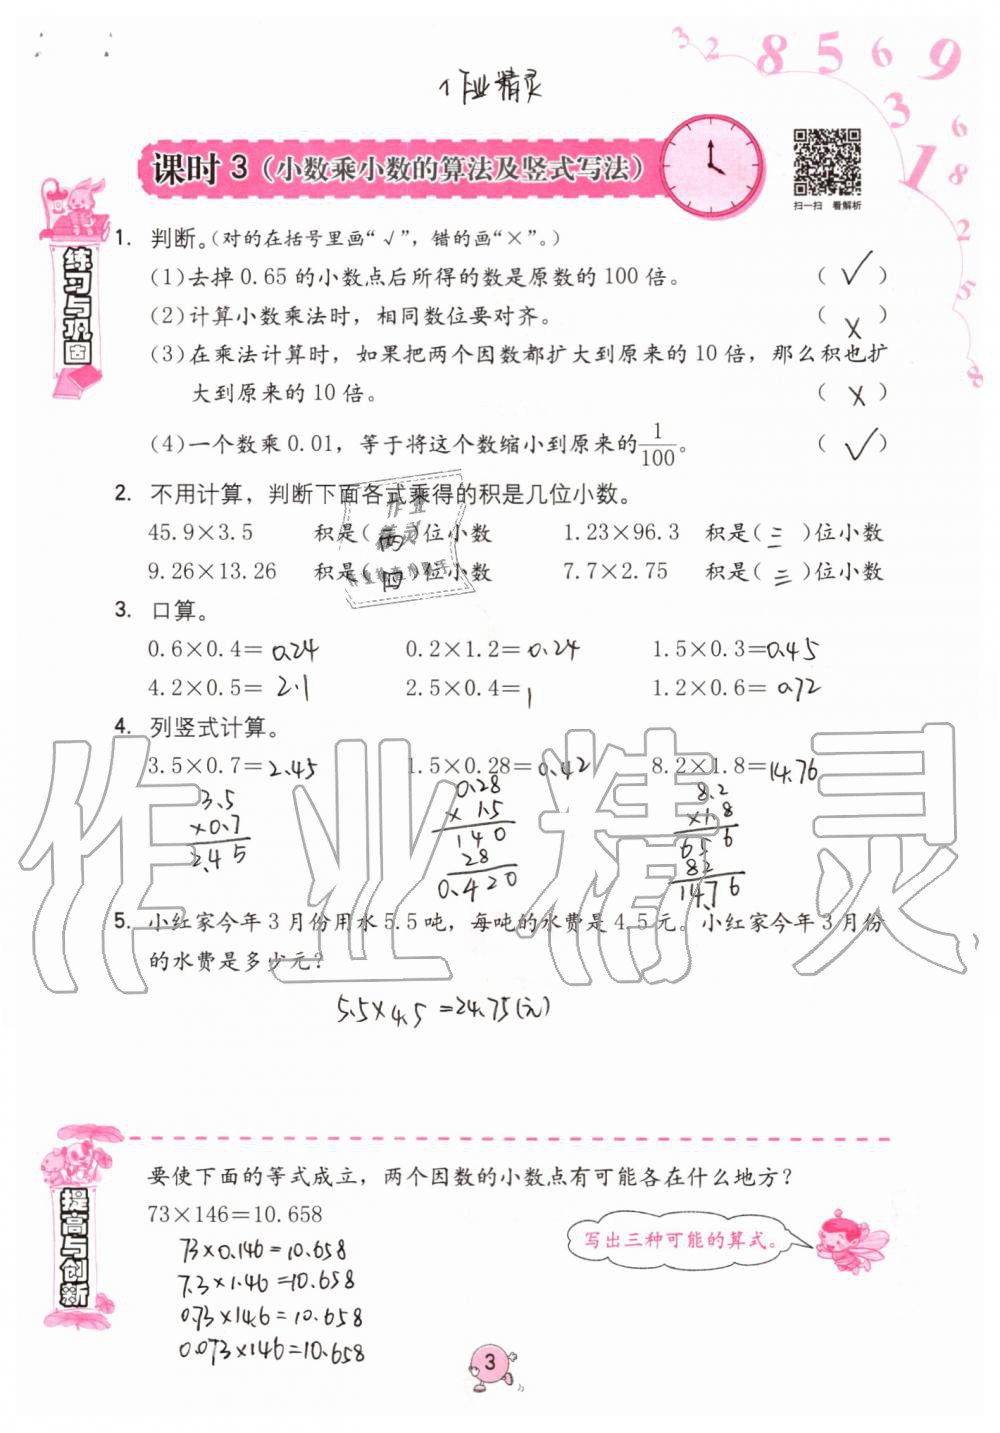 3 2 8 5 6 9
作业精灵
课时 3（小数乘小数的算法及竖式写法）
扫一扫 看解析
3 6 1 8 2 5 8
练习与巩固
1. 判断。（对的在括号里画“√”，错的画“×”。）
(1)去掉 0.65 的小数点后所得的数是原数的 100 倍。 ( √ )
(2)计算小数乘法时，相同数位要对齐。 ( × )
(3)在乘法计算时，如果把两个因数都扩大到原来的 10 倍，那么积也扩
大到原来的 10 倍。 ( × )
(4)一个数乘 0.01，等于将这个数缩小到原来的1/100。 ( √ )
2. 不用计算，判断下面各式乘得的积是几位小数。
45.9×3.5 积是(两)位小数 1.23×96.3 积是(三)位小数
9.26×13.26 积是(四)位小数 7.7×2.75 积是(三)位小数
作业
精灵
3. 口算。
0.6×0.4= 0.24 0.2×1.2= 0.24 1.5×0.3=0.45
4.2×0.5= 2.1 2.5×0.4= 1 1.2×0.6= 0.72
4. 列竖式计算。
3.5×0.7=2.45 1.5×0.28=0.42 8.2×1.8=14.76
3.5 0.28 8.2
×0.7 × 1.5 ×1.8
2.45 140 656
28 82
0.420 14.76
作业精灵
5. 小红家今年 3 月份用水 5.5 吨，每吨的水费是 4.5 元。小红家今年 3 月份
的水费是多少元？
5.5×4.5=24.75(元)
提高与创新
要使下面的等式成立，两个因数的小数点有可能各在什么地方？
73×146=10.658
写出三种可能的算式。
73×0.146=10.658
7.3×1.46=10.658
0.73×14.6=10.658
0.073×146=10.658
3